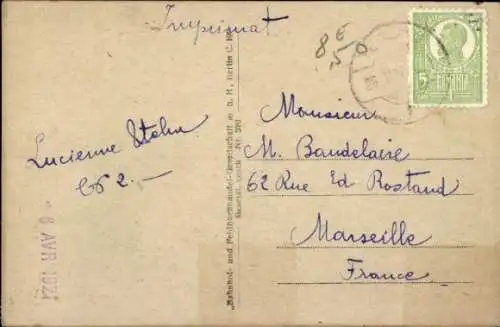 Imprimat
8
5
Lucienne Stohn
6 AVR 1921
"Bahnhof- und Feldbuchhandel-Gesellschaft m. b. H., Berlin C.
5
Monsieur
M. Baudelaire
62 Rue Ed Rostand
Marseille
France